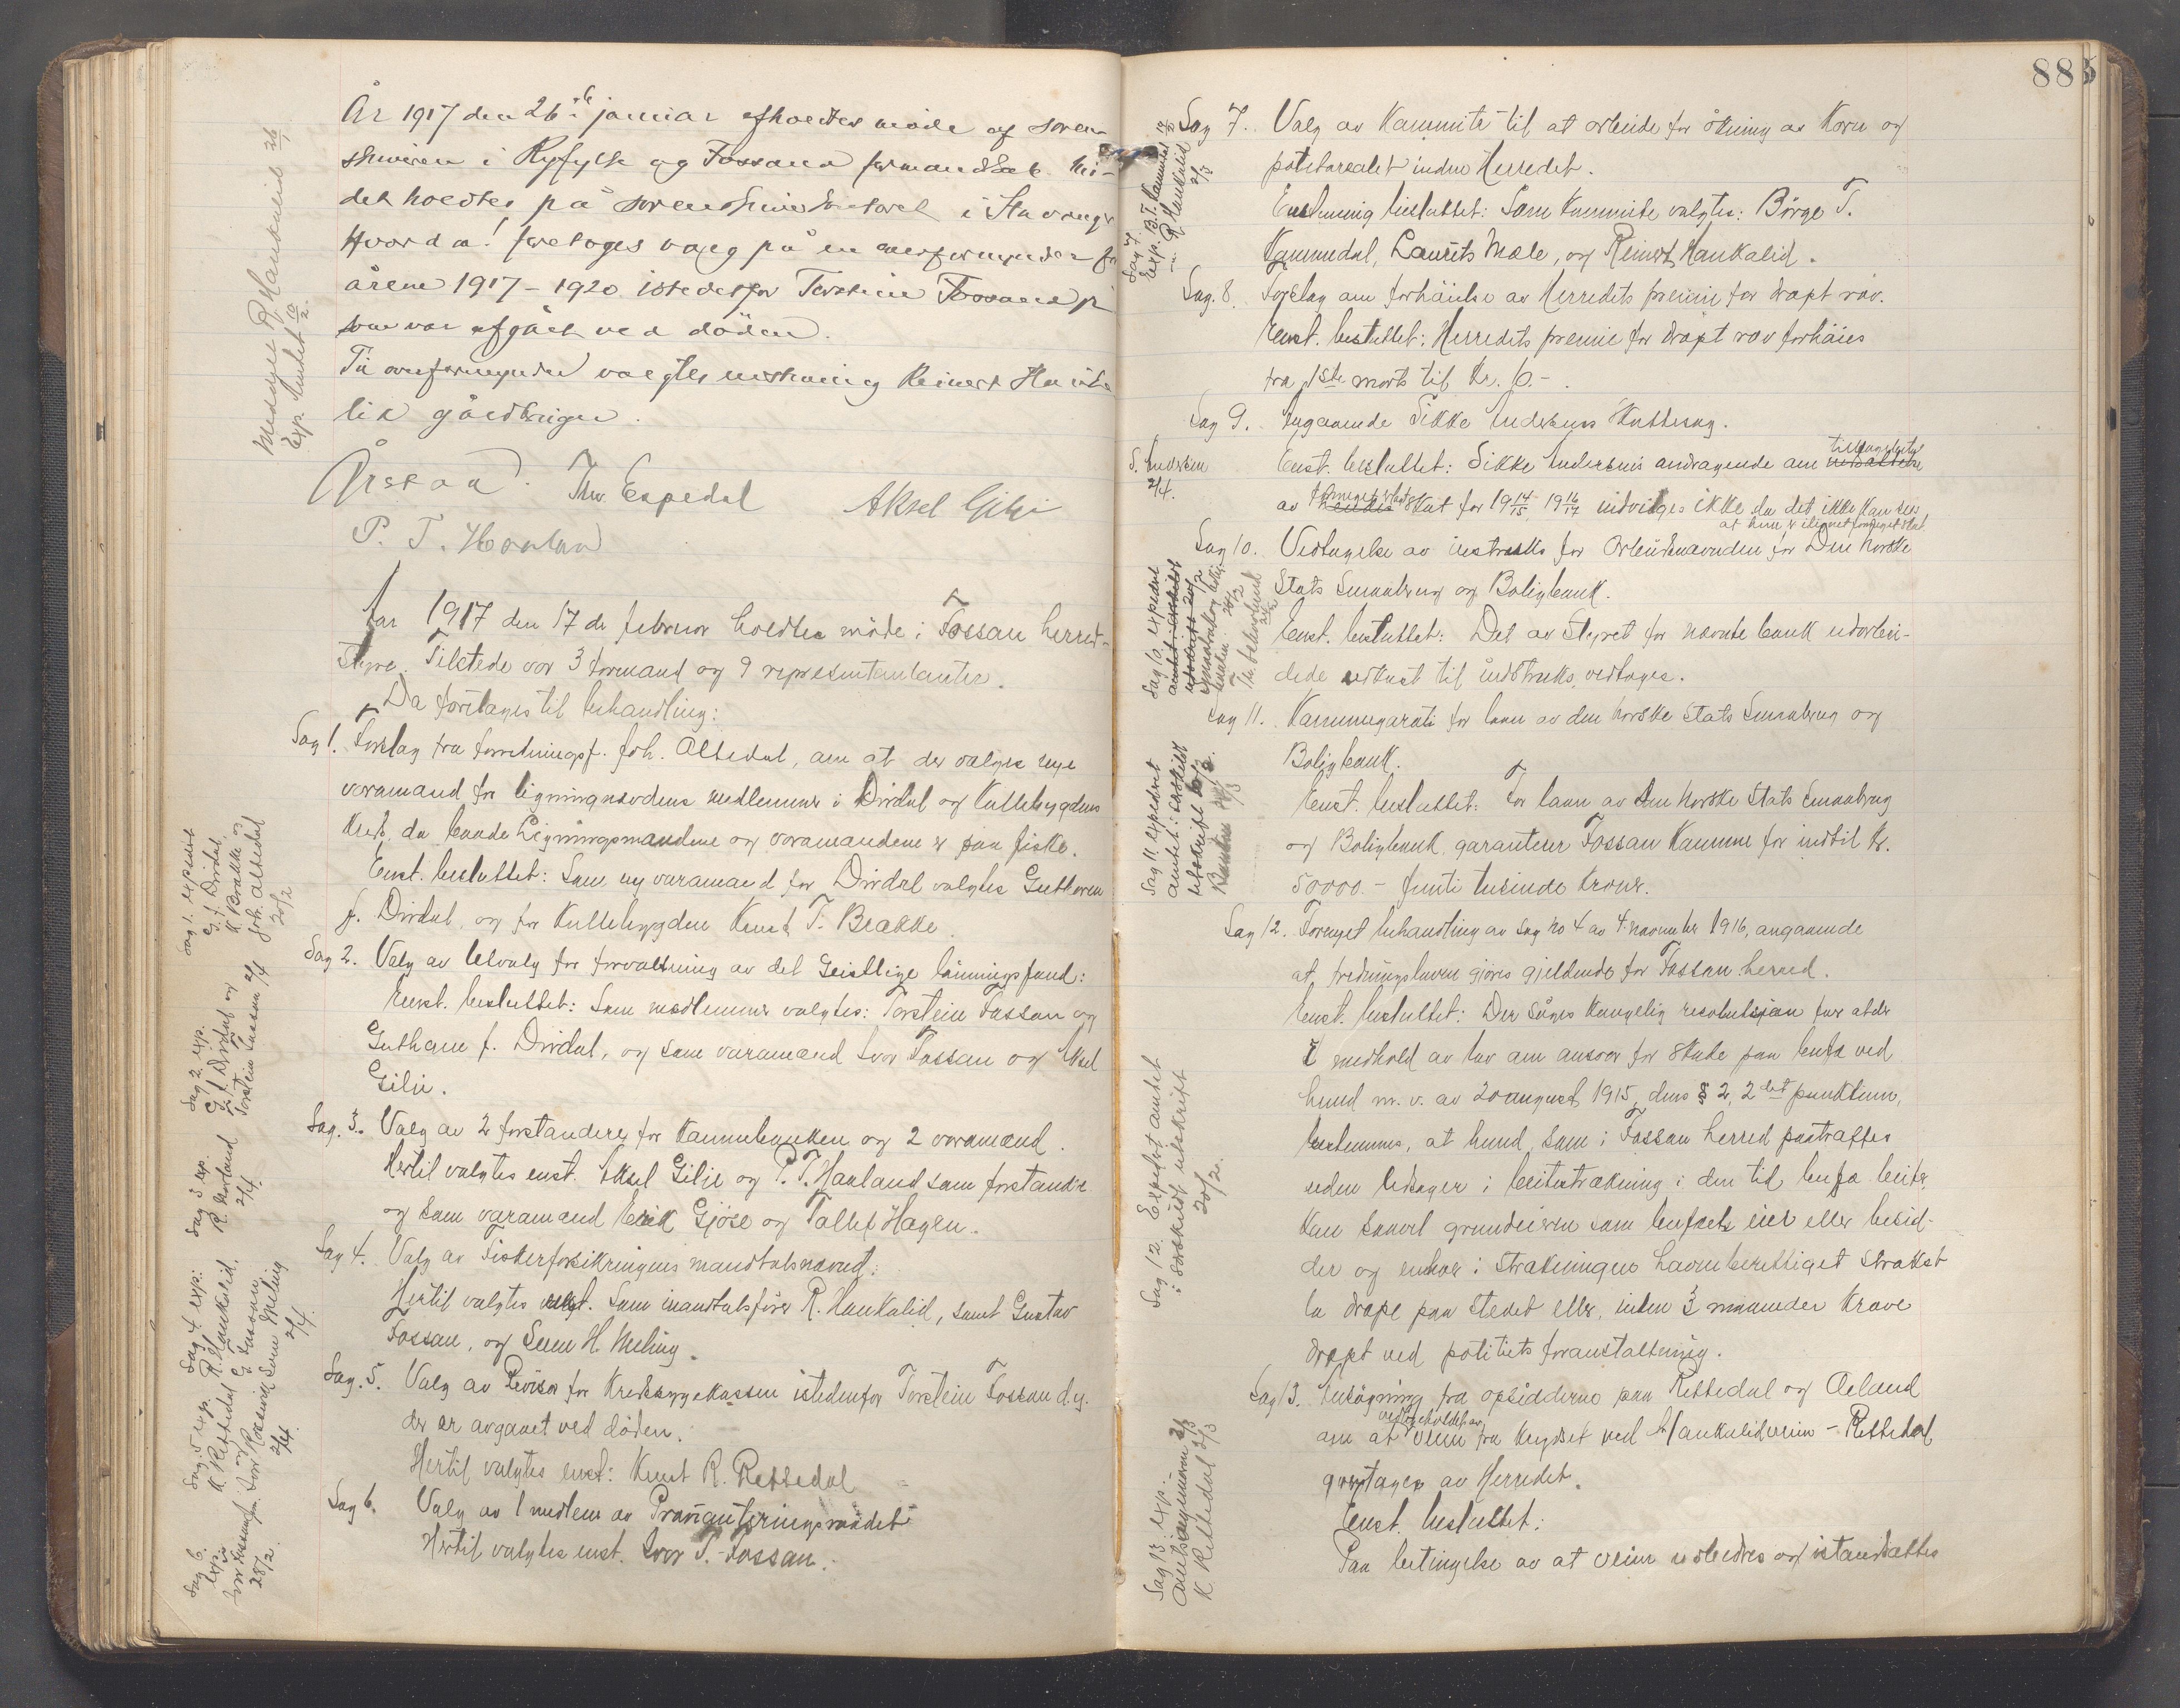 År 1917 den 26de januar afholdtes møde af soren-
skriveren i Ryfylke og Fossand formandskab. Mø-
det holdtes på sorenskriverkontoret i Stavanger
Hvorda! foretoges valg på en overformynder for
årene 1917 - 1920 istedetfor Torstein Fossand
som var afgået ved døden.
Til overformynder valgtes enstemmig Reinert Hauka-
lid gårdbruger.
Årstad. Thv. Espedal Aksel Gilje
P. T. Haaland
Meddelt R. Haukalid 26/1
Exp. Amtet 10/2.
Aar 1917 den 17de februar holdtes møde i Fossan herred-
styre. Tilstede var 3 formænd og 9 representantanter.
Da foretoges til behandling:
Sag 1. Forslag fra forretningsf. Joh. Altedal, om at der vælges nye
varamænd for ligningsnævdens medlemmer i Dirdal og Kullebygdens
Kreds, da baade Ligningsmændene og varamændene er paa fiske.
Enst. besluttet: Som ny varamand for Dirdal valgtes Guttorm
J. Dirdal, og for Kullebygden Knut T. Brække.
Sag 2. Valg av Utvalg for forvaltning av det Geistlige lønningsfond:
Enst. besluttet: Som medlemmer valgtes: Torstein Fossan og
Guthorm J. Dirdal, og som varamænd Ivar Fossan og Aksel
Gilje.
Sag. 3. Valg av 2 forstandere for Kommubanken og 2 varamænd.
Hertil valgtes enst. Aksel Gilje og P. T. Haaland som forstandre
og som varamænd Eirik Gjøse og Tollef Hagen.
Sag 4. Valg av Fiskerforsikringens mandtalsnævnd:
Hertil valgtes enst. Som mandtalsfører R. Haukalid, samt Gustav
Fossan, og Sven H. Meling.
Sag. 5. Valg av Revisor for Kredssygekassen istedenfor Torstein Fossan d.y.
der er avgaaet ved døden.
Hertil valgtes enst: Knut R. Rettedal
Sag 6. Valg av 1 medlem av Provianteringsraadet
Hertil valgtes enst. Ivar T. Fossan.
Sag 1. expedert
G. J. Dirdal
K. Brække og
Joh. Altedal
20/2
Sag 2 exp.
G. J. Dirdal og
Torstein Fossan 2/4
Sag 3 exp.
R. Haaland
2/4.
Sag 4 exp:
R. Haukalid,
G. Fossan,
Sven Meling
2/4.
Sag. 5 exp.
K. Rettedal
2/4
Sag 6.
exp.
28/2.
885
Sag 7. Valg av Kommite til at arbeide for økning av Korn og
potetarealet inden Herredet.
Enstemmig besluttet: Som Kommite valgtes: Børge T.
Kommedal, Laurits Mæle, og Reinert Haukalid.
Sag. 8. Forslag om forhøielse av Herredets premie for dræpt ræv.
Enst. besluttet: Herredets premie for dræpt ræv forhøies
fra 1ste marts til Kr. 6.-.
Sag 9. Angaaende Sikke Andersens Skattesag.
Enst. besluttet: Sikke Andersens andragende om tilbagebetaling
av formeget betalt Skat for 1914/15 1916/17 indvilges ikke da det ikke Kan sees
at hun er ilignet formeget skat
Sag 10. Vedtagelse av instruks for Arbeidernævnden for Den Norske
Stats Smaabrug og Boligbank.
Enst. besluttet: Det av Styret for nævnte bank utarbei-
dede utkast til indstruks, vedtages.
Sag 11. Kommunegaranti for laan av den norske Stats Smaabrug og
Boligbank.
Enst. besluttet: For laan av den Norske Stats Smaabrug
og Boligbank, garanterer Fossan Kommune for indtil Kr.
50000.- femti tusinde Kroner.
Sag 12. Fornyet behandling av Sag no 4 av 4. november 1916, angaaende
at fredningsloven gjøres gjeldende for Fossan herred.
Enst. besluttet: Der søges Kongelig resolutsjon for at der
i medhold av lov om ansvar for skade paa bufæ ved
hund m. v. av 20 august 1915, dens § 2, 2det punktum,
bestemmes, at hund som i Fossan herred paatræffes
uden ledsager i beitestrækning i den tid bufæ beiter
kan saavel grundeieren som bufæets eier eller besid-
der og enhver i strækningen havneberettiget strakst
la dræpe paa stedet eller inden 3 maaneder kræve
dræpt ved politiets foranstaltning.
Sag 13. Ansøgning fra opsidderne paa Rettedal og Øeland
om at vedligeholdet av veien fra krydset ved Haukalidveien - Rettedal
overtages av Herredet.
Enst. besluttet:
Paa betingelse av at veien utbedres og istandsættes
Sag 7.
Exp. B. T. Kommedal
R. Haukalid
2/3
S. Andersen
2/4.
Sag 10. expedert
Sag 11. expedert
amtet i særskilt
utskrift 20/2.
Sag 12. Expedert amtet
i særskildt utskrift
20/2.
Sag 13. exp.
K. Rettedal 2/3